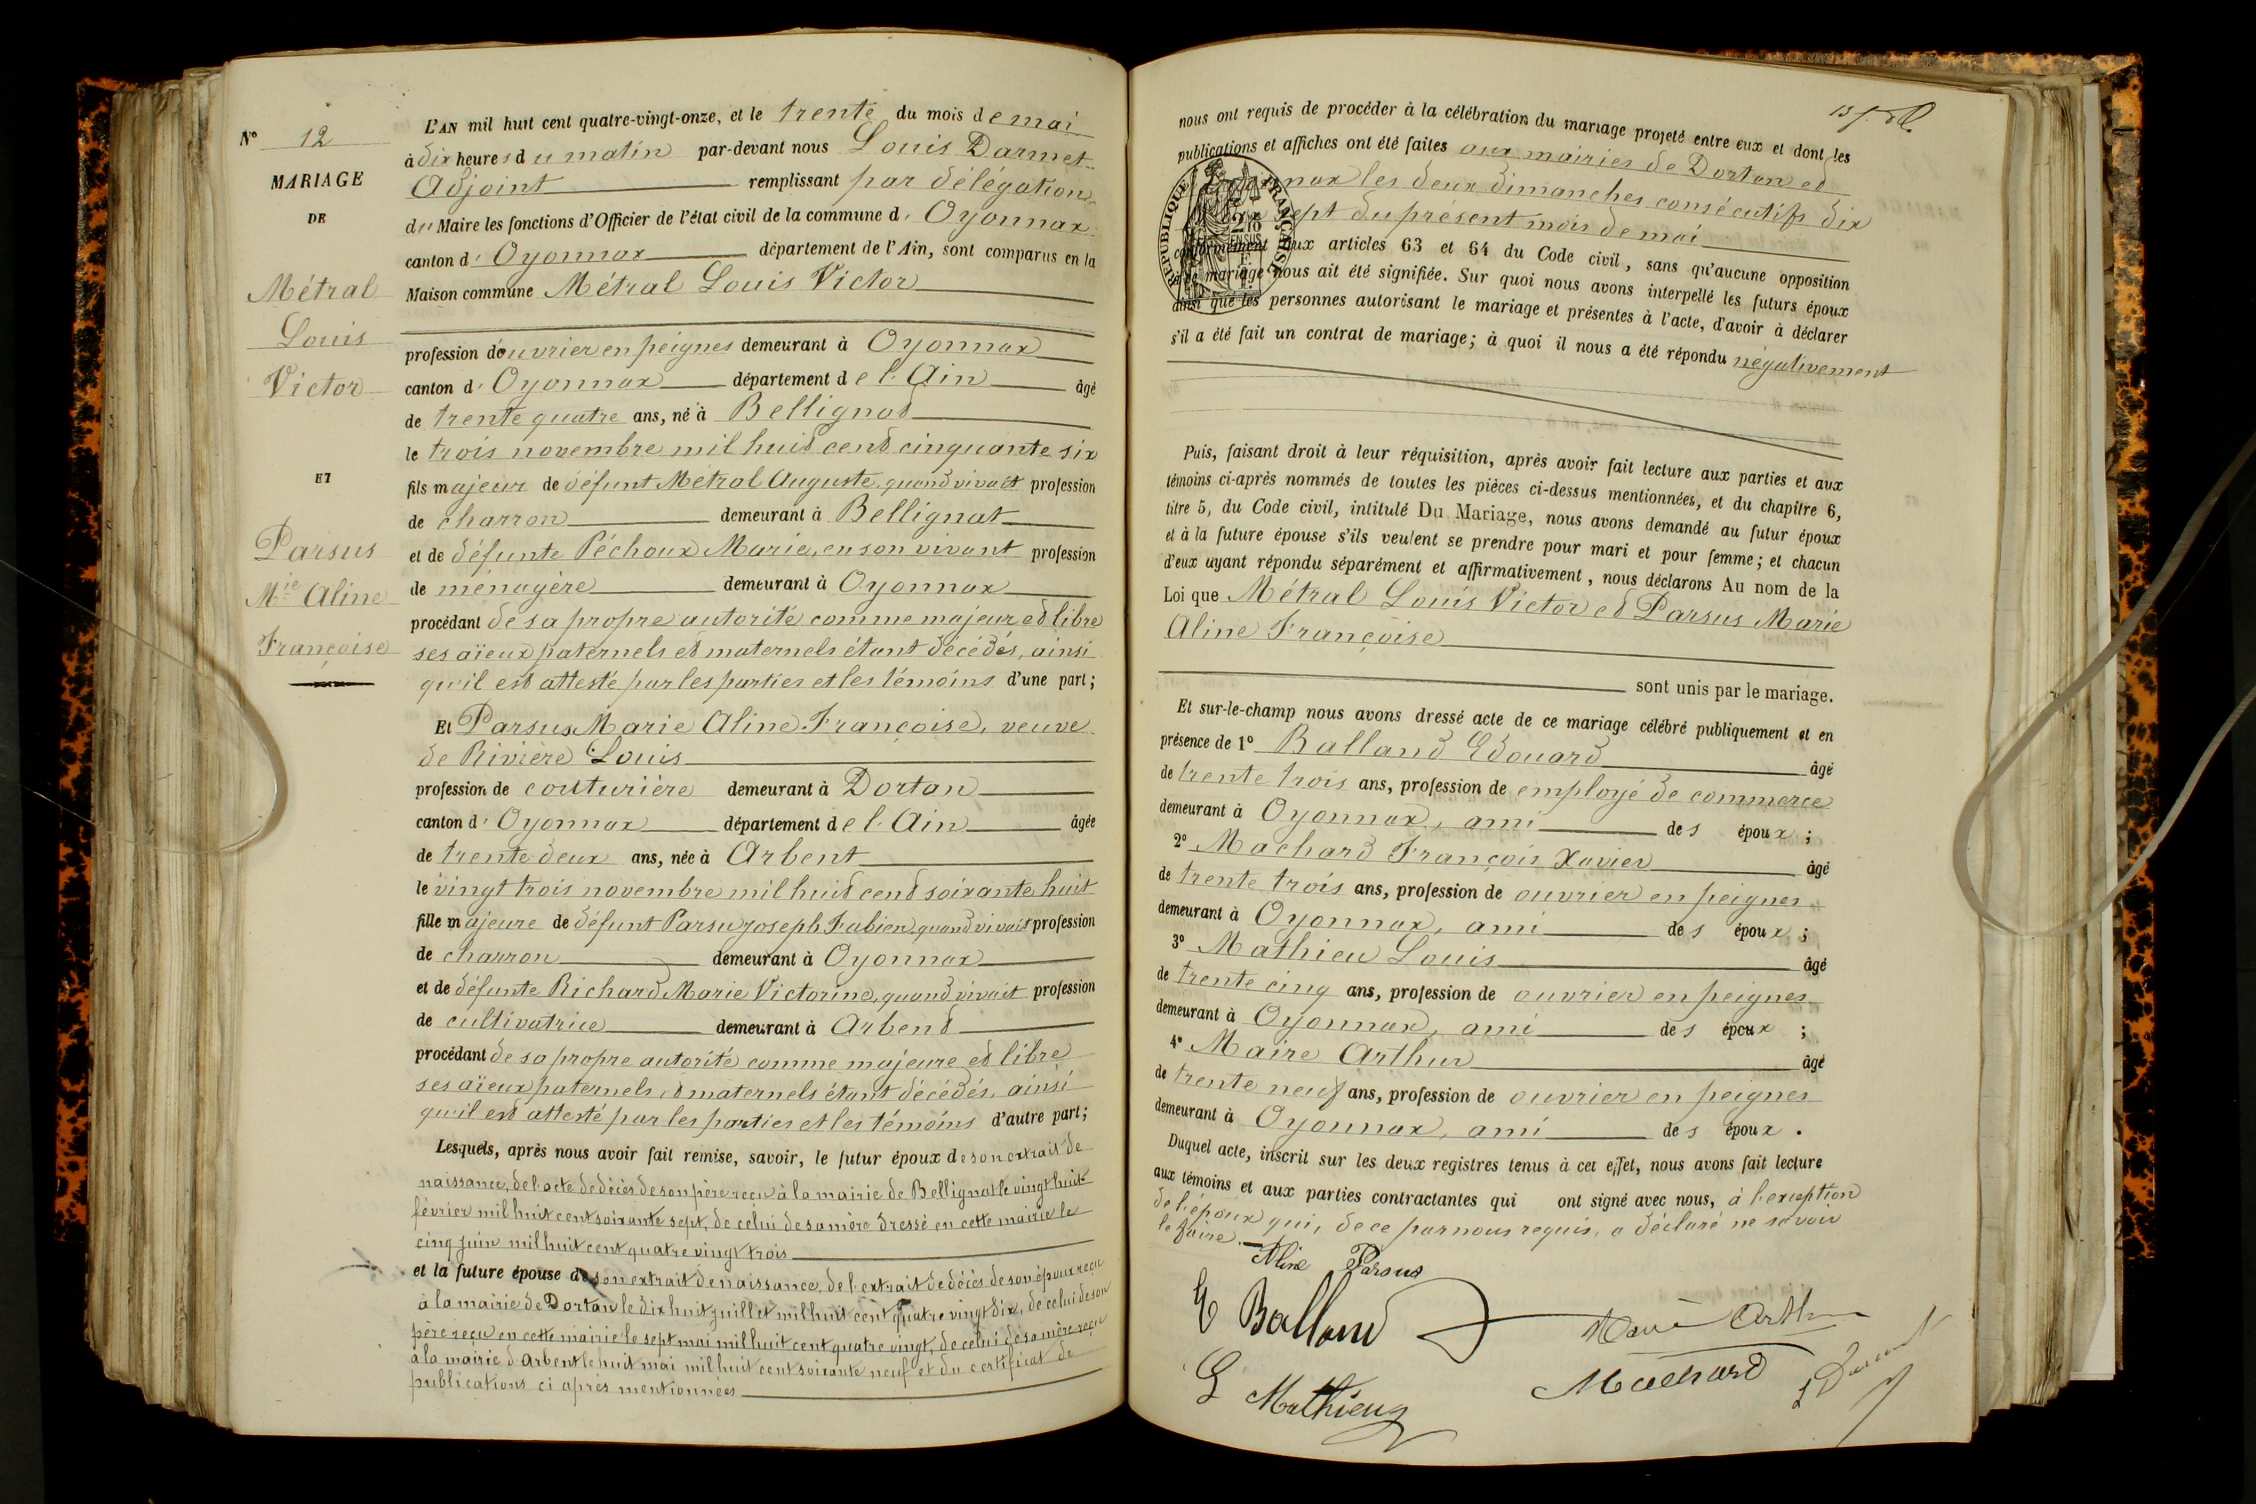 N° 12
MARIAGE
DE
Métral
Louis
Victor
ET
Parsus
Mie Aline
Françoise
L'AN mil huit cent quatre-vingt-onze, et le trente du mois de mai
à dix heures du matin par-devant nous Louis Darmet
Adjoint remplissant par délégation
du Maire les fonctions d'Officier de l'état civil de la commune d'Oyonnax
canton d'Oyonnax département de l'Ain, sont comparus en la
Maison commune Métral Louis Victor
profession d'ouvrier en peignes demeurant à Oyonnax
canton d'Oyonnax département de l'Ain âgé
de trente quatre ans, né à Bellignat
le trois novembre mil huit cent cinquante six
fils majeur de défunt Métral Auguste, quand vivait profession
de charron demeurant à Bellignat
et de défunte Péchoux Marie, en son vivant profession
de ménagère demeurant à Oyonnax
procédant de sa propre autorité comme majeur et libre
ses aïeux paternels et maternels étant décédés, ainsi
qu'il est attesté par les parties et les témoins d'une part;
Et Parsus Marie Aline Françoise, veuve
de Rivière Louis
profession de couturière demeurant à Dortan
canton d'Oyonnax département de l'Ain âgée
de trente deux ans, née à Arbent
le vingt trois novembre mil huit cent soixante huit
fille majeure de défunt Parsu Joseph Fabien, quand vivait profession
de charron demeurant à Oyonnax
et de défunte Richard Marie Victorine, quand vivait profession
de cultivatrice demeurant à Arbent
procédant de sa propre autorité comme majeure et libre
ses aïeux paternels et maternels étant décédés, ainsi
qu'il est attesté par les parties et les témoins d'autre part;
Lesquels, après nous avoir fait remise, savoir, le futur époux de son extrait de
naissance, de l'acte de décès de son père reçu à la mairie de Bellignat le vingt huit
février mil huit cent soixante sept, de celui de sa mère dressé en cette mairie le
cinq juin mil huit cent quatre vingt trois
et la future épouse de son extrait de naissance, de l'extrait de décès de son époux reçu
à la mairie de Dortan le dix huit juillet mil huit cent quatre vingt dix, de celui de son
père reçu en cette mairie le sept mai mil huit cent quatre vingt, de celui de sa mère reçu
à la mairie d'Arbent le huit mai mil huit cent soixante neuf et du certificat de
publications ci après mentionnées
nous ont requis de procéder à la célébration du mariage projeté entre eux et dont les
publications et affiches ont été faites aux mairies de Dortan et
les deux dimanches consécutifs dix
sept du présent mois de mai
conformément aux articles 63 et 64 du Code civil, sans qu'aucune opposition
à ce mariage nous ait été signifiée. Sur quoi nous avons interpellé les futurs époux
ainsi que les personnes autorisant le mariage et présentes à l'acte, d'avoir à déclarer
s'il a été fait un contrat de mariage; à quoi il nous a été répondu négativement
RÉPUBLIQUE FRANÇAISE
Puis, faisant droit à leur réquisition, après avoir fait lecture aux parties et aux
témoins ci-après nommés de toutes les pièces ci-dessus mentionnées, et du chapitre 6,
titre 5, du Code civil, intitulé Du Mariage, nous avons demandé au futur époux
et à la future épouse s'ils veulent se prendre pour mari et pour femme; et chacun
d'eux ayant répondu séparément et affirmativement, nous déclarons Au nom de la
Loi que Métral Louis Victor et Parsus Marie
Aline Françoise
sont unis par le mariage.
Et sur-le-champ nous avons dressé acte de ce mariage célébré publiquement et en
présence de 1° Balland Edouard âgé
de trente trois ans, profession de employé de commerce
demeurant à Oyonnax, ami des époux;
2° Machard François Xavier âgé
de trente trois ans, profession de ouvrier en peignes
demeurant à Oyonnax, ami des époux;
3° Mathieu Louis âgé
de trente cinq ans, profession de ouvrier en peignes
demeurant à Oyonnax, ami des époux;
4° Maire Arthur âgé
de trente neuf ans, profession de ouvrier en peignes
demeurant à Oyonnax, ami des époux.
Duquel acte, inscrit sur les deux registres tenus à cet effet, nous avons fait lecture
aux témoins et aux parties contractantes qui ont signé avec nous, à l'exception
de l'époux qui, de ce par nous requis, a déclaré ne savoir
le faire.
Aline Parsus
E Balland
Maire Arth
Machard
L Mathieu